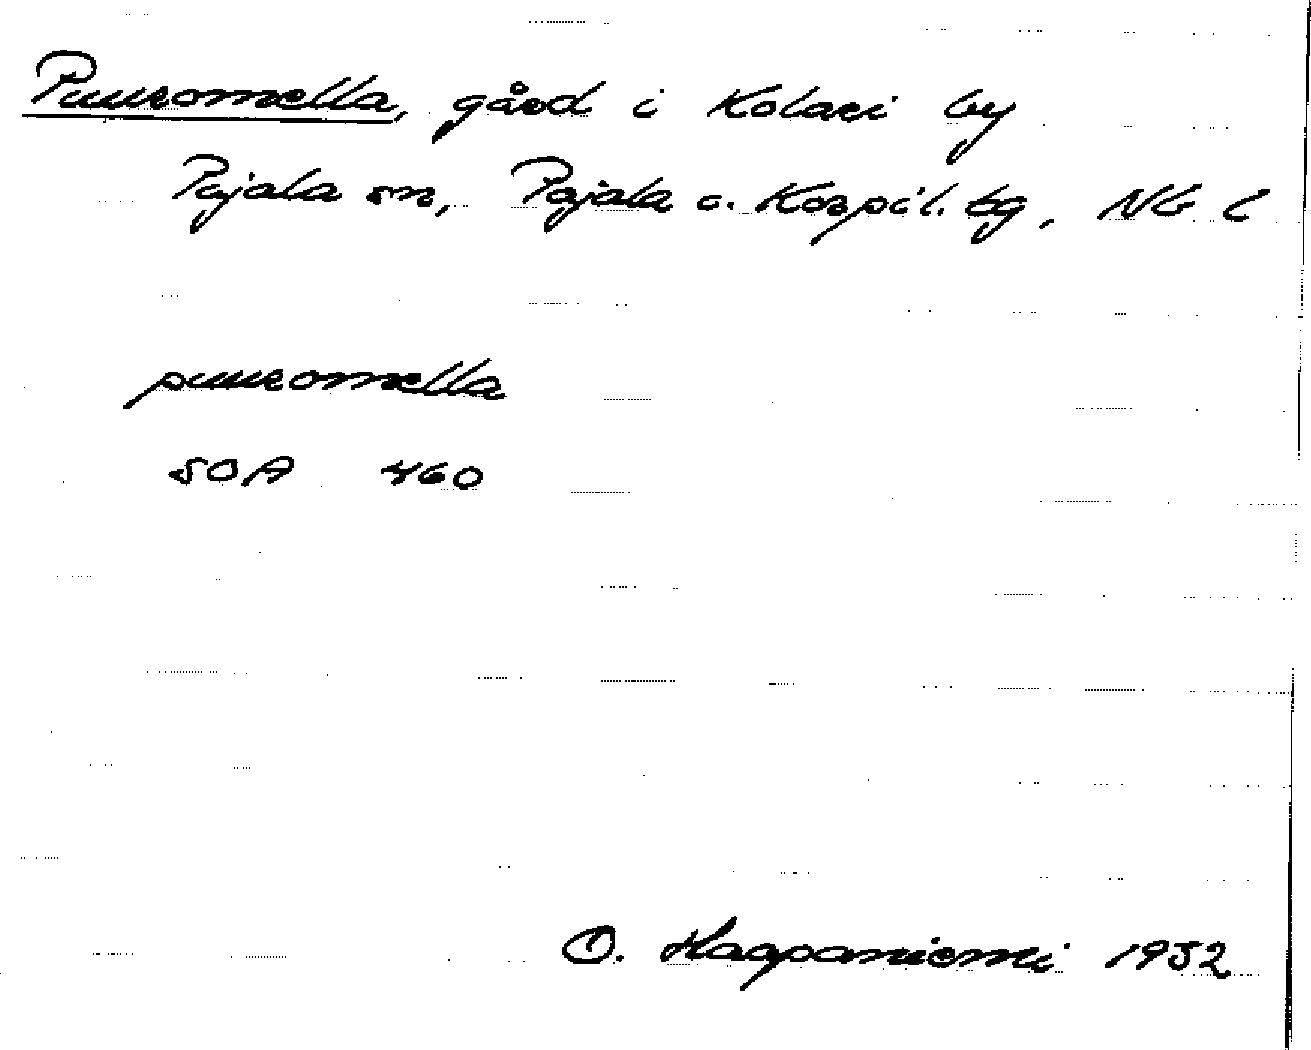 Puuromella, gård i Kolari by
Pajala sn, Pajala o. Korpil. tg, NB L
puuromella
SOA 460
O. Haapaniemi 1952